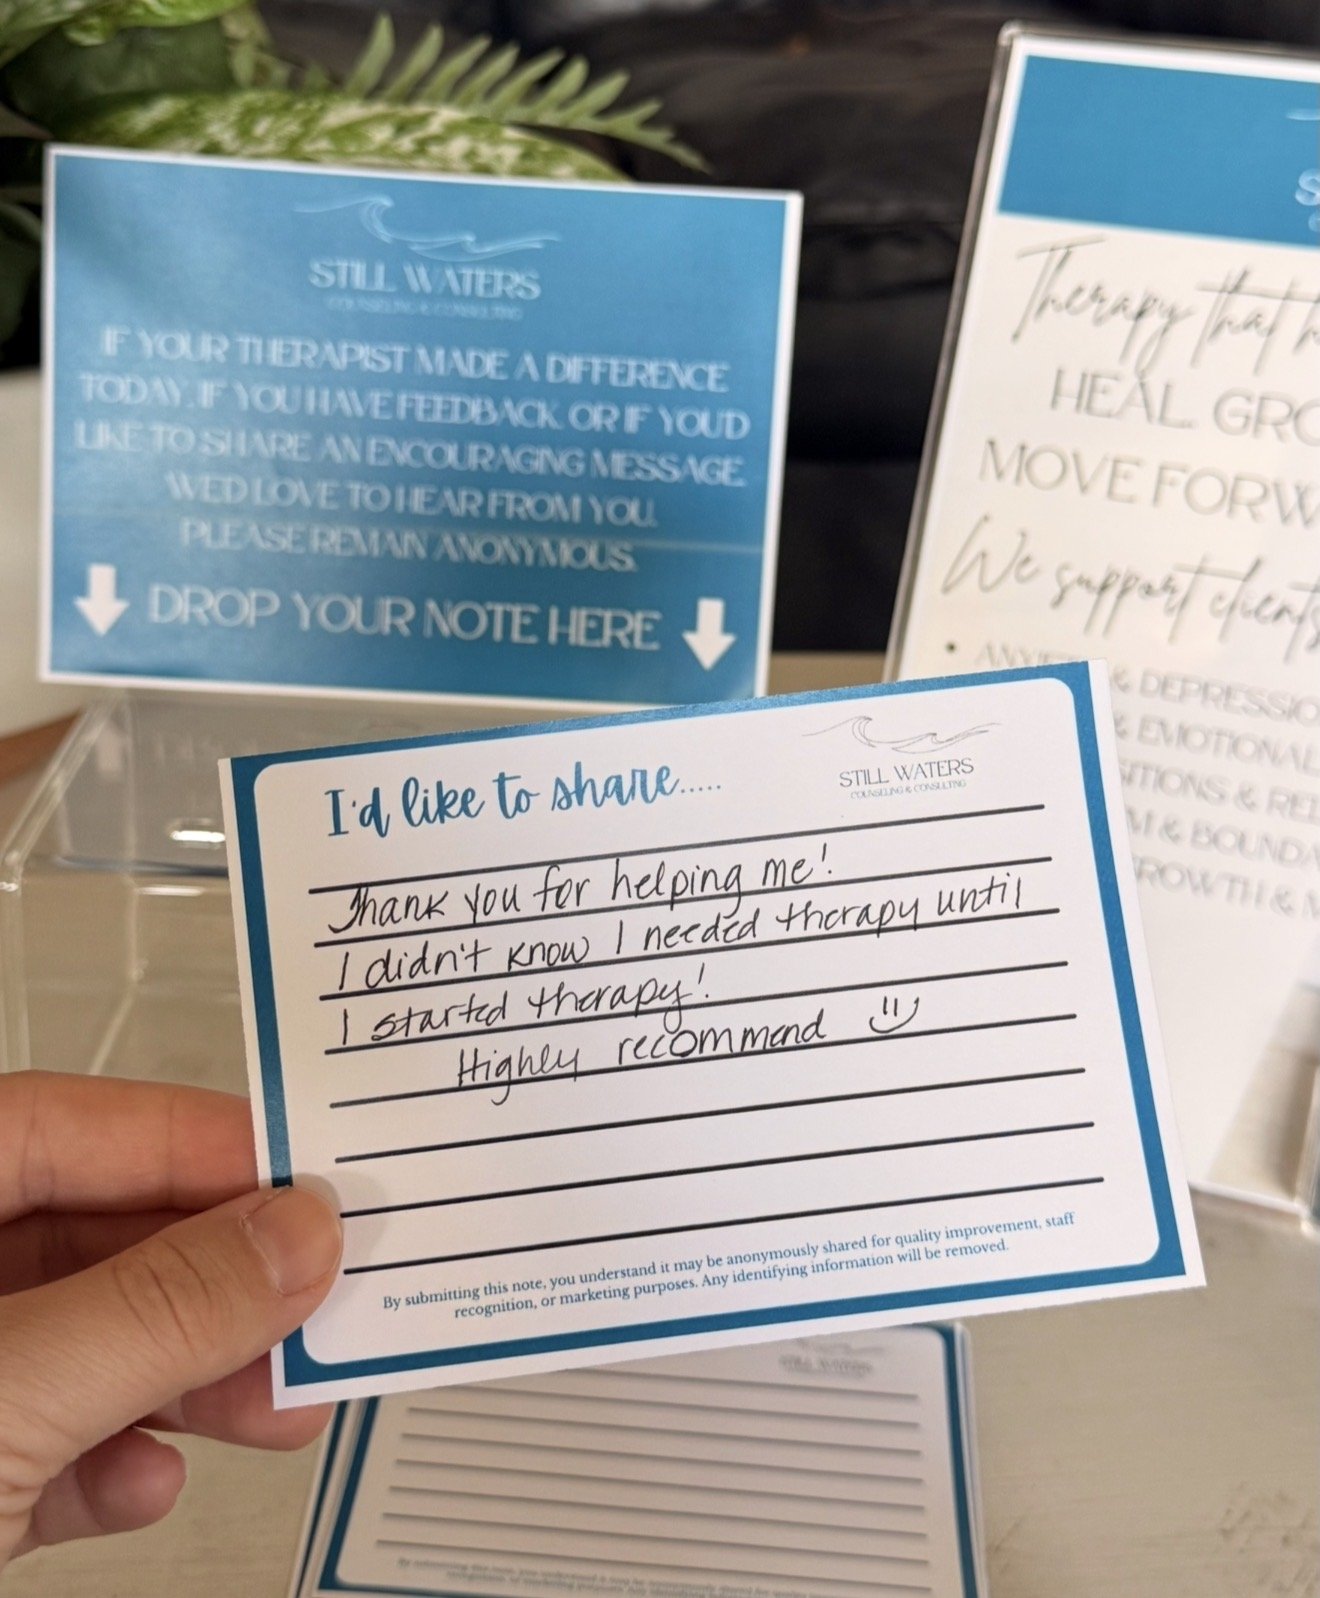 STILL WATERS
COUNSELING & CONSULTING
IF YOUR THERAPIST MADE A DIFFERENCE
TODAY, IF YOU HAVE FEEDBACK OR IF YOU'D
LIKE TO SHARE AN ENCOURAGING MESSAGE
WE'D LOVE TO HEAR FROM YOU.
PLEASE REMAIN ANONYMOUS.
DROP YOUR NOTE HERE
Therapy that
HEAL GRO
MOVE FORW
We support clients
• ANXIETY & DEPRESSIO
& EMOTIONAL
SITIONS & REL
& BOUNDA
ROWTH &
I'd like to share.....
STILL WATERS
COUNSELING & CONSULTING
Thank you for helping me!
I didn't know I needed therapy until
I started therapy!
Highly recommend
By submitting this note, you understand it may be anonymously shared for quality improvement, staff
recognition, or marketing purposes. Any identifying information will be removed.
STILL WATERS